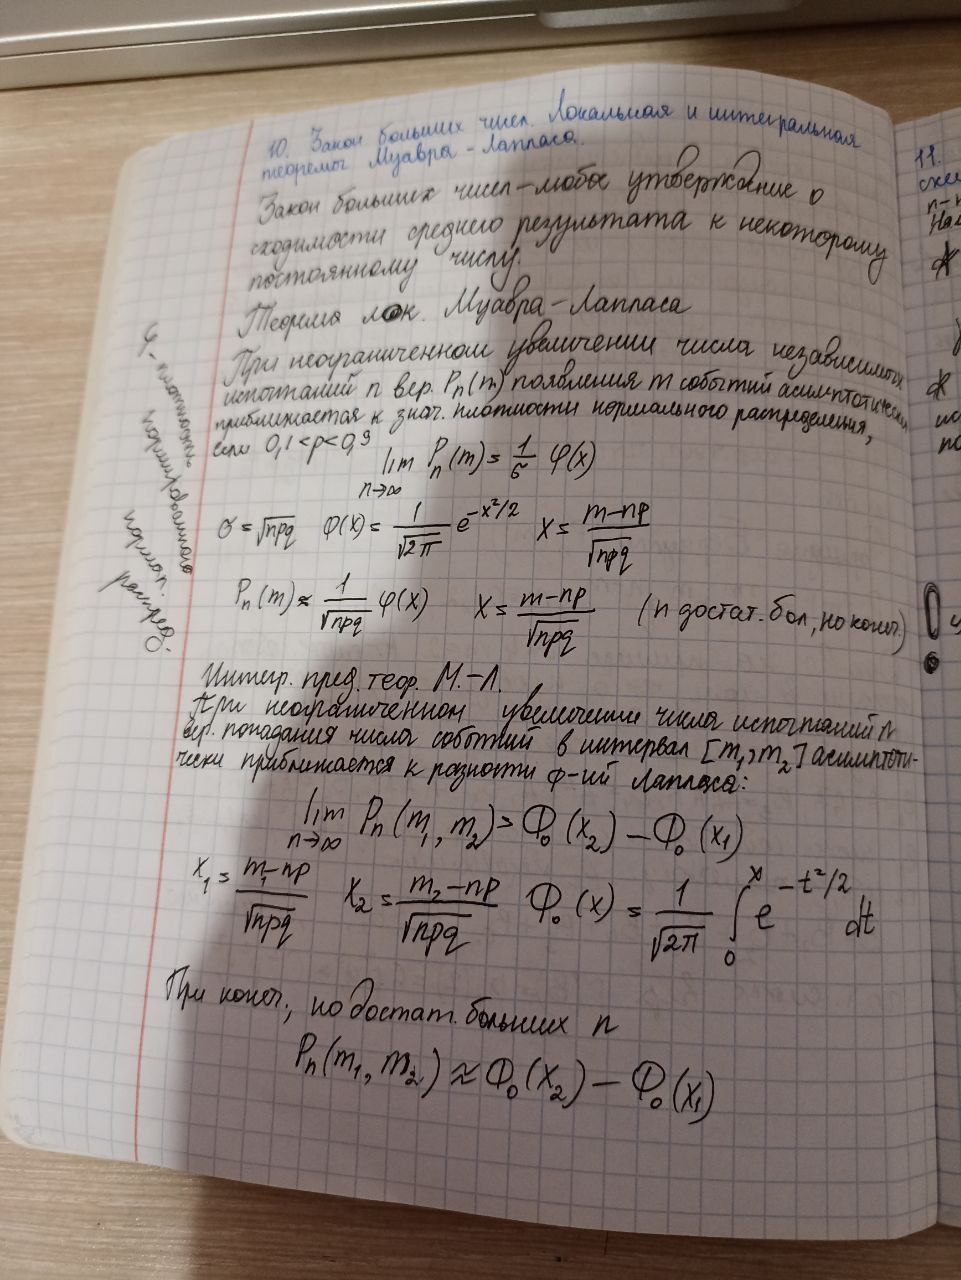 10. Закон больших чисел. Локальная и интегральная
теоремы Муавра-Лапласа.
Закон больших чисел-любое утверждение о
сходимости среднего результата к некоторому
постоянному числу.
Теорема лок. Муавра-Лапласа
При неограниченном увеличении числа независимых
испытаний n вер. Pₙ(m) появления m событий асимптотически
приближается к знач. плотности нормального распределения,
если 0,1<p<0,9
lim Pₙ(m)=1/σ φ(x)
n→∞
σ=√npq φ(x)=1/√2π e^(-x²/2) x=(m-np)/√npq
Pₙ(m)≈1/√npq φ(x) x=(m-np)/√npq (n достат. бол, но конеч.)
Интегр. пред. теор. М.-Л.
При неограниченном увеличении числа испытаний n
вер. попадания числа событий в интервал [m₁,m₂] асимптоти-
чески приближается к разности ф-ий Лапласа:
lim Pₙ(m₁, m₂)=Φ₀(x₂)-Φ₀(x₁)
n→∞
x₁=(m₁-np)/√npq x₂=(m₂-np)/√npq Φ₀(x)=1/√2π ∫₀ˣ e^(-t²/2) dt
При конеч., но достат. больших n
Pₙ(m₁, m₂)≈Φ₀(x₂)-Φ₀(x₁)
φ-плотность
нормал.
распред.
11.